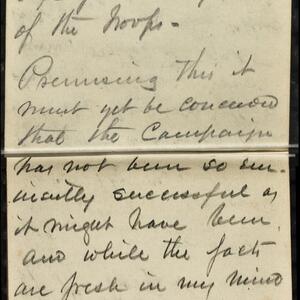 of the troops -
Premising this it
must yet be conceded
that the Campaign
has not been so em-
inently successful as
it might have been,
and while the facts
are fresh in my mind